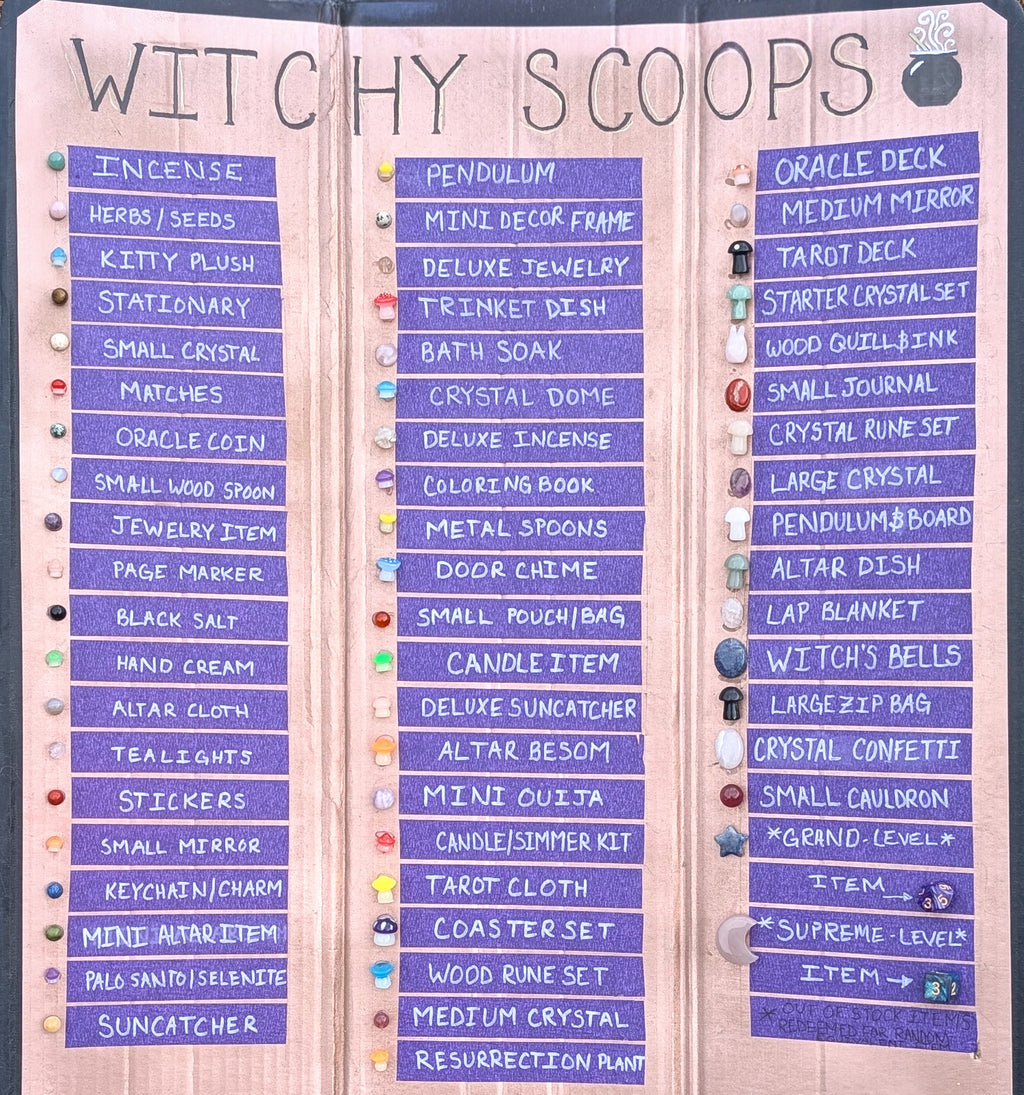 WITCHY SCOOPS
INCENSE
HERBS/SEEDS
KITTY PLUSH
STATIONARY
SMALL CRYSTAL
MATCHES
ORACLE COIN
SMALL WOOD SPOON
JEWELRY ITEM
PAGE MARKER
BLACK SALT
HAND CREAM
ALTAR CLOTH
TEALIGHTS
STICKERS
SMALL MIRROR
KEYCHAIN/CHARM
MINI ALTAR ITEM
PALO SANTO/SELENITE
SUNCATCHER
PENDULUM
MINI DECOR FRAME
DELUXE JEWELRY
TRINKET DISH
BATH SOAK
CRYSTAL DOME
DELUXE INCENSE
COLORING BOOK
METAL SPOONS
DOOR CHIME
SMALL POUCH/BAG
CANDLE ITEM
DELUXE SUNCATCHER
ALTAR BESOM
MINI OUIJA
CANDLE/SIMMER KIT
TAROT CLOTH
COASTER SET
WOOD RUNE SET
MEDIUM CRYSTAL
RESURRECTION PLANT
ORACLE DECK
MEDIUM MIRROR
TAROT DECK
STARTER CRYSTAL SET
WOOD QUILL & INK
SMALL JOURNAL
CRYSTAL RUNE SET
LARGE CRYSTAL
PENDULUM & BOARD
ALTAR DISH
LAP BLANKET
WITCH'S BELLS
LARGE ZIP BAG
CRYSTAL CONFETTI
SMALL CAULDRON
*GRAND-LEVEL*
ITEM → 3
*SUPREME-LEVEL*
ITEM → 3 2
* OUT OF STOCK ITEMS
REDEEMED FOR RANDOM